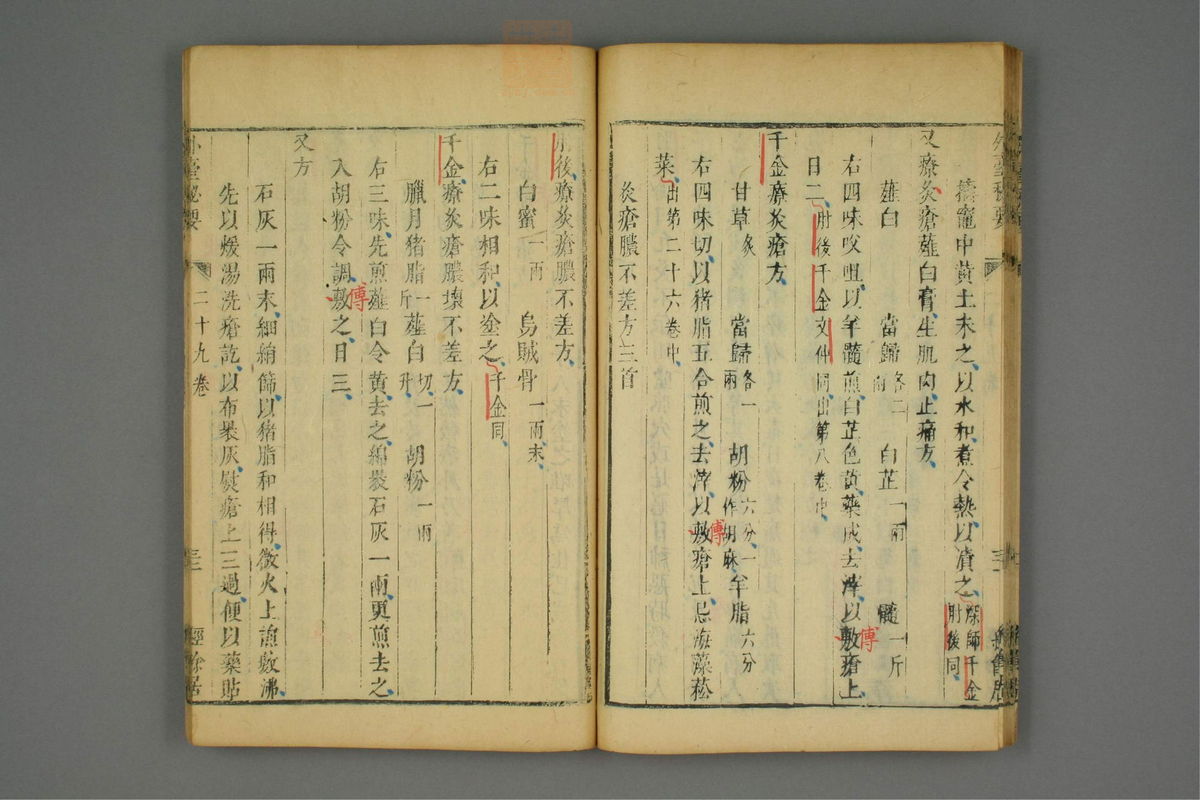 外臺祕要
擣竈中黃土末之以水和煮令熱以漬之深師千金肘後同
又療灸瘡薤白膏生肌肉止痛方
薤白 當歸各二兩 白芷一兩 羊髓一斤
右四味㕮咀以羊髓煎白芷色黃藥成去滓以敷瘡上
傅
日二肘後千金文仲同出第八卷中
千金療灸瘡方
甘草炙 當歸各一兩 胡粉六分一作胡麻 羊脂六分
右四味切以猪脂五合煎之去滓以敷瘡上忌海藻菘
傅
菜出第二十六卷中
灸瘡膿不差方三首
肘後療灸瘡膿不差方
白蜜一兩 烏賊骨一兩末
右二味相和以塗之千金同
千金療灸瘡膿壞不差方
臘月猪脂一斤 薤白切一升 胡粉一兩
右三味先煎薤白令黃去之綿裹石灰一兩更煎去之
入胡粉令調敷之日三
傅
又方
石灰一兩末細絹篩以猪脂和相得微火上煎數沸
先以煖湯洗瘡訖以布裹灰熨瘡上三過便以藥貼
外臺祕要 二十九卷 三二 經餘居